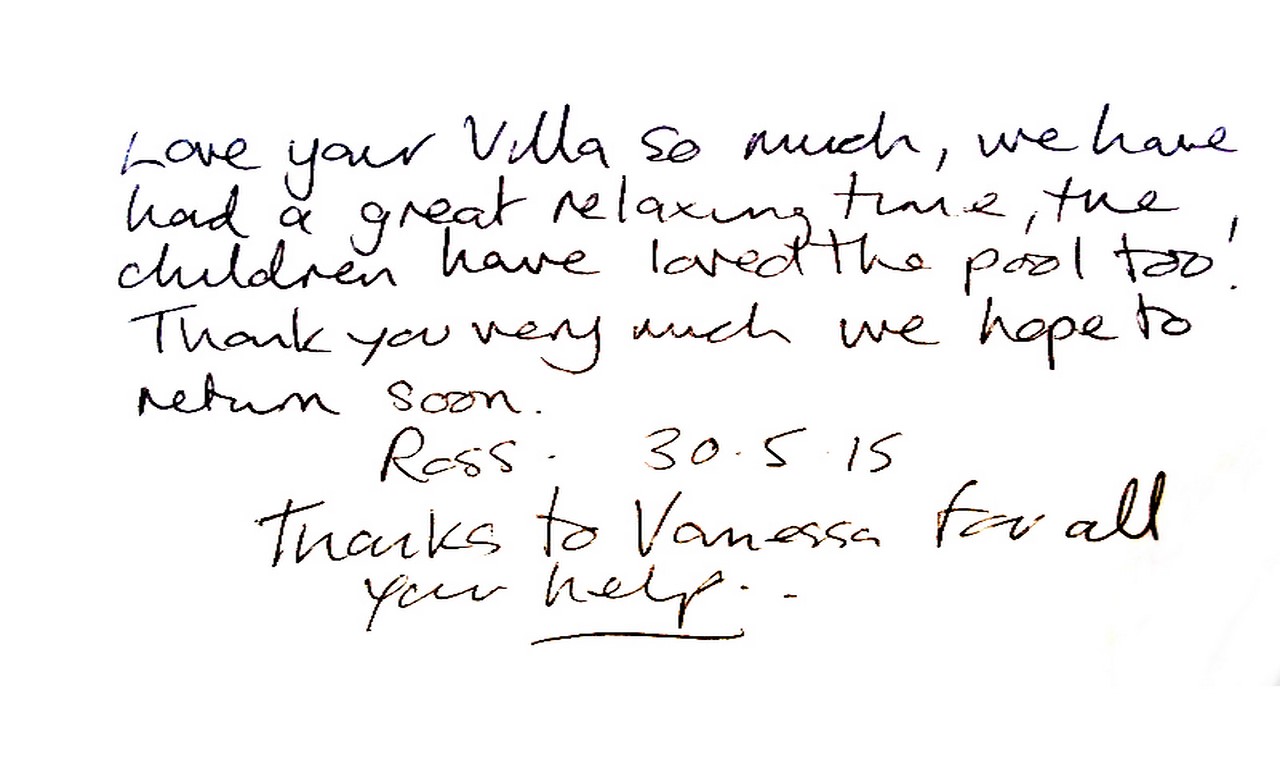 Love your Villa so much, we have
had a great relaxing time, the
children have loved the pool too!
Thank you very much we hope to
return soon.
Ross. 30.5.15
Thanks to Vanessa for all
your help...